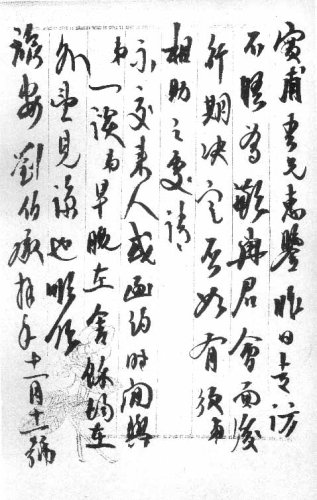 寅甫吾兄惠鉴昨日走访
不晤为歉与君会面后
行期决定否如有须弟
相助之处请
示交来人或函约时间与
弟一谈弟早晚在舍余均在
外望见谅也顺颂
旅安 劉伯承拜手十一月十一號